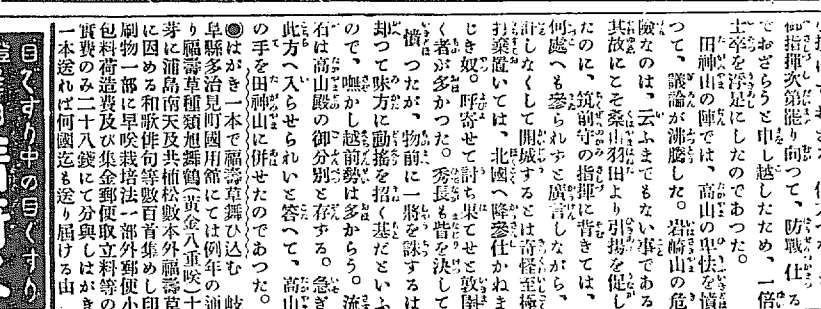 御指揮次第罷り向つて、防戰仕る
でおざらうと申し越したため、一倍
士卒を浮足にしたのであつた。
田神山の陣では、高山の卑怯を憤
つて、議論が沸騰した。岩崎山の危
險なのは、云ふまでもない事である
其故にこそ桑山羽田より引揚を促し
たのに、筑前守の指揮に背きては、
何處へも參られずと廣言しながら、
計しなくして開城するとは奇怪至極
打棄置いては、北國へ降參仕かねま
じき奴。呼寄せて討ち果てせと敦圉
く者が多かつた。秀長も眥を決して
憤つたが、物前に一將を誅するは
却つて味方に動搖を招く基だといふ
ので、嘸かし越前勢は多からう。流
石は高山殿の御分別と存ずる。急ぎ
此方へ入らせられいと答へて、高山
の手を田神山に併せたのであつた。
◉はがき一本で福壽草舞ひ込む 岐
阜縣多治見町國用館にては例年の通
り福壽草種類旭舞鶴(黄金八重咲)十
芽に浦島南天及共植松數本外福壽草
に因める和歌俳句等數百首集めし印
刷物一部に早咲栽培法一部外郵便小
包料荷造費及び集金郵便取立料等の
實費のみ二十八錢にて分與しはがき
一本送れば何國迄も送り届ける山
目ぐすり中の目ぐすり